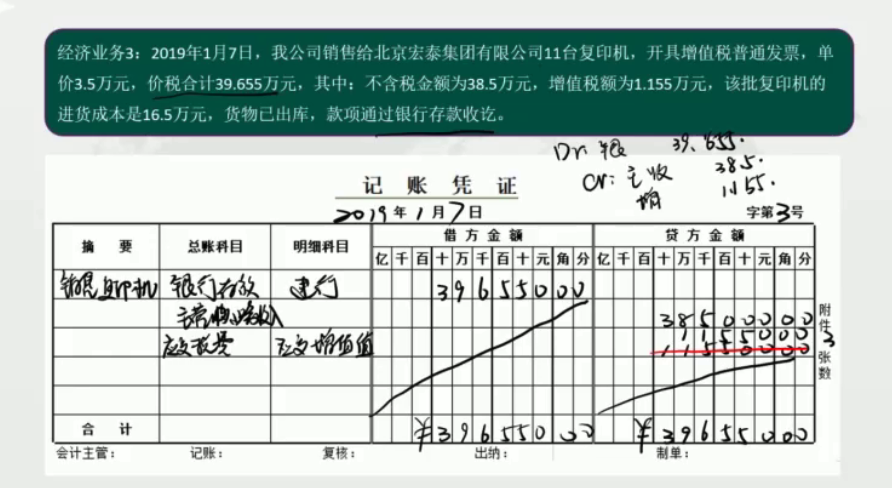 经济业务3：2019年1月7日，我公司销售给北京宏泰集团有限公司11台复印机，开具增值税普通发票，单
价3.5万元，价税合计39.655万元，其中：不含税金额为38.5万元，增值税额为1.155万元，该批复印机的
进货成本是16.5万元，货物已出库，款项通过银行存款收讫。
Dr: 银 39.655.
Cr: 主收 38.5.
增 1.155.
记 账 凭 证
2019年1月7日 字第3号
摘 要 总账科目 明细科目 借方金额 贷方金额
亿千百十万千百十元角分 亿千百十万千百十元角分
银行存款 建行 39655000
38500000
1155000
应交税费 应交增值税 11550000
附件3张数
合 计 ¥39655000 ¥39655000
会计主管： 记账： 复核： 出纳： 制单：